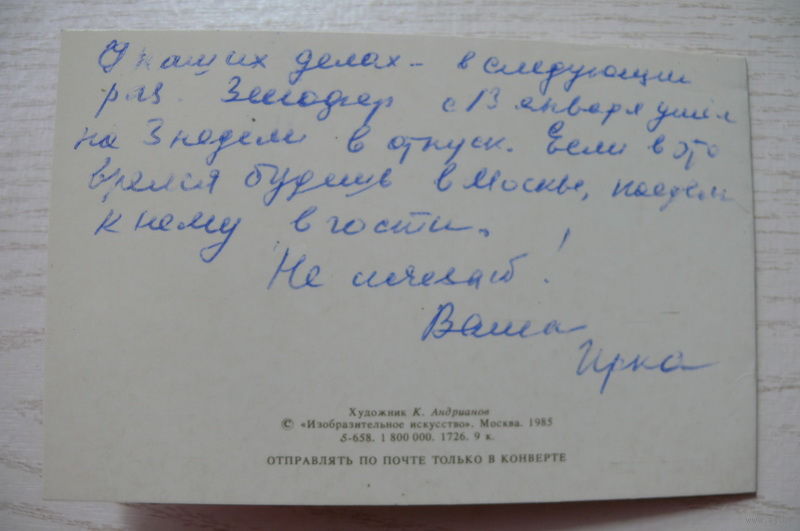 О наших делах – в следующий
раз. с 13 января ушёл
на 3 недели в отпуск. Если в это
время будешь в Москве, поедем
к нему в гости.
Не исчезай!
Ваша
Ирка
Художник К. Андрианов
© «Изобразительное искусство». Москва. 1985
5-658. 1 800 000. 1726. 9 к.
ОТПРАВЛЯТЬ ПО ПОЧТЕ ТОЛЬКО В КОНВЕРТЕ